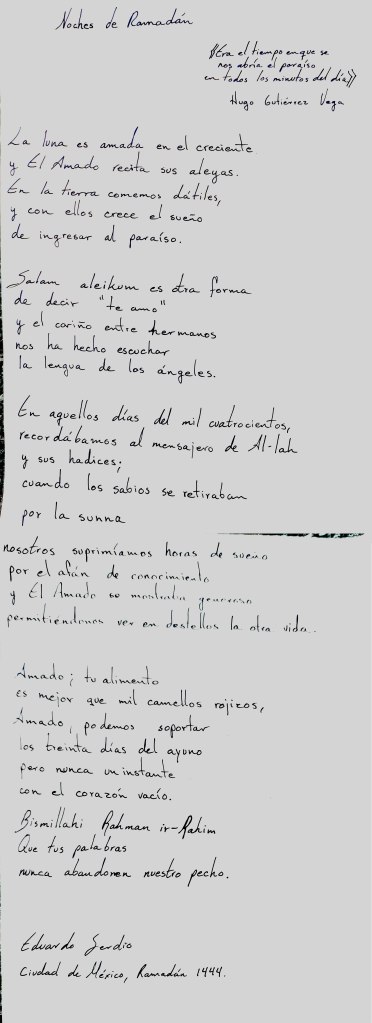 Noches de Ramadán
«Era el tiempo en que se
nos abría el paraíso
en todos los minutos del día»
Hugo Gutiérrez Vega
La luna es amada en el creciente
y El Amado recita sus aleyas.
En la tierra comemos dátiles,
y con ellos crece el sueño
de ingresar al paraíso.
Salam aleikum es otra forma
de decir "te amo"
y el cariño entre hermanos
nos ha hecho escuchar
la lengua de los ángeles.
En aquellos días del mil cuatrocientos,
recordábamos al mensajero de Al-lah
y sus hadices;
cuando los sabios se retiraban
por la sunna
nosotros suprimíamos horas de sueño
por el afán de conocimiento
y El Amado se mostraba generoso
permitiéndonos ver en destellos la otra vida.
Amado; tu alimento
es mejor que mil camellos rojizos,
Amado, podemos soportar
los treinta días del ayuno
pero nunca un instante
con el corazón vacío.
Bismillahi Rahman ir-Rahim
Que tus palabras
nunca abandonen nuestro pecho.
Eduardo Serdio
Ciudad de México, Ramadán 1444.